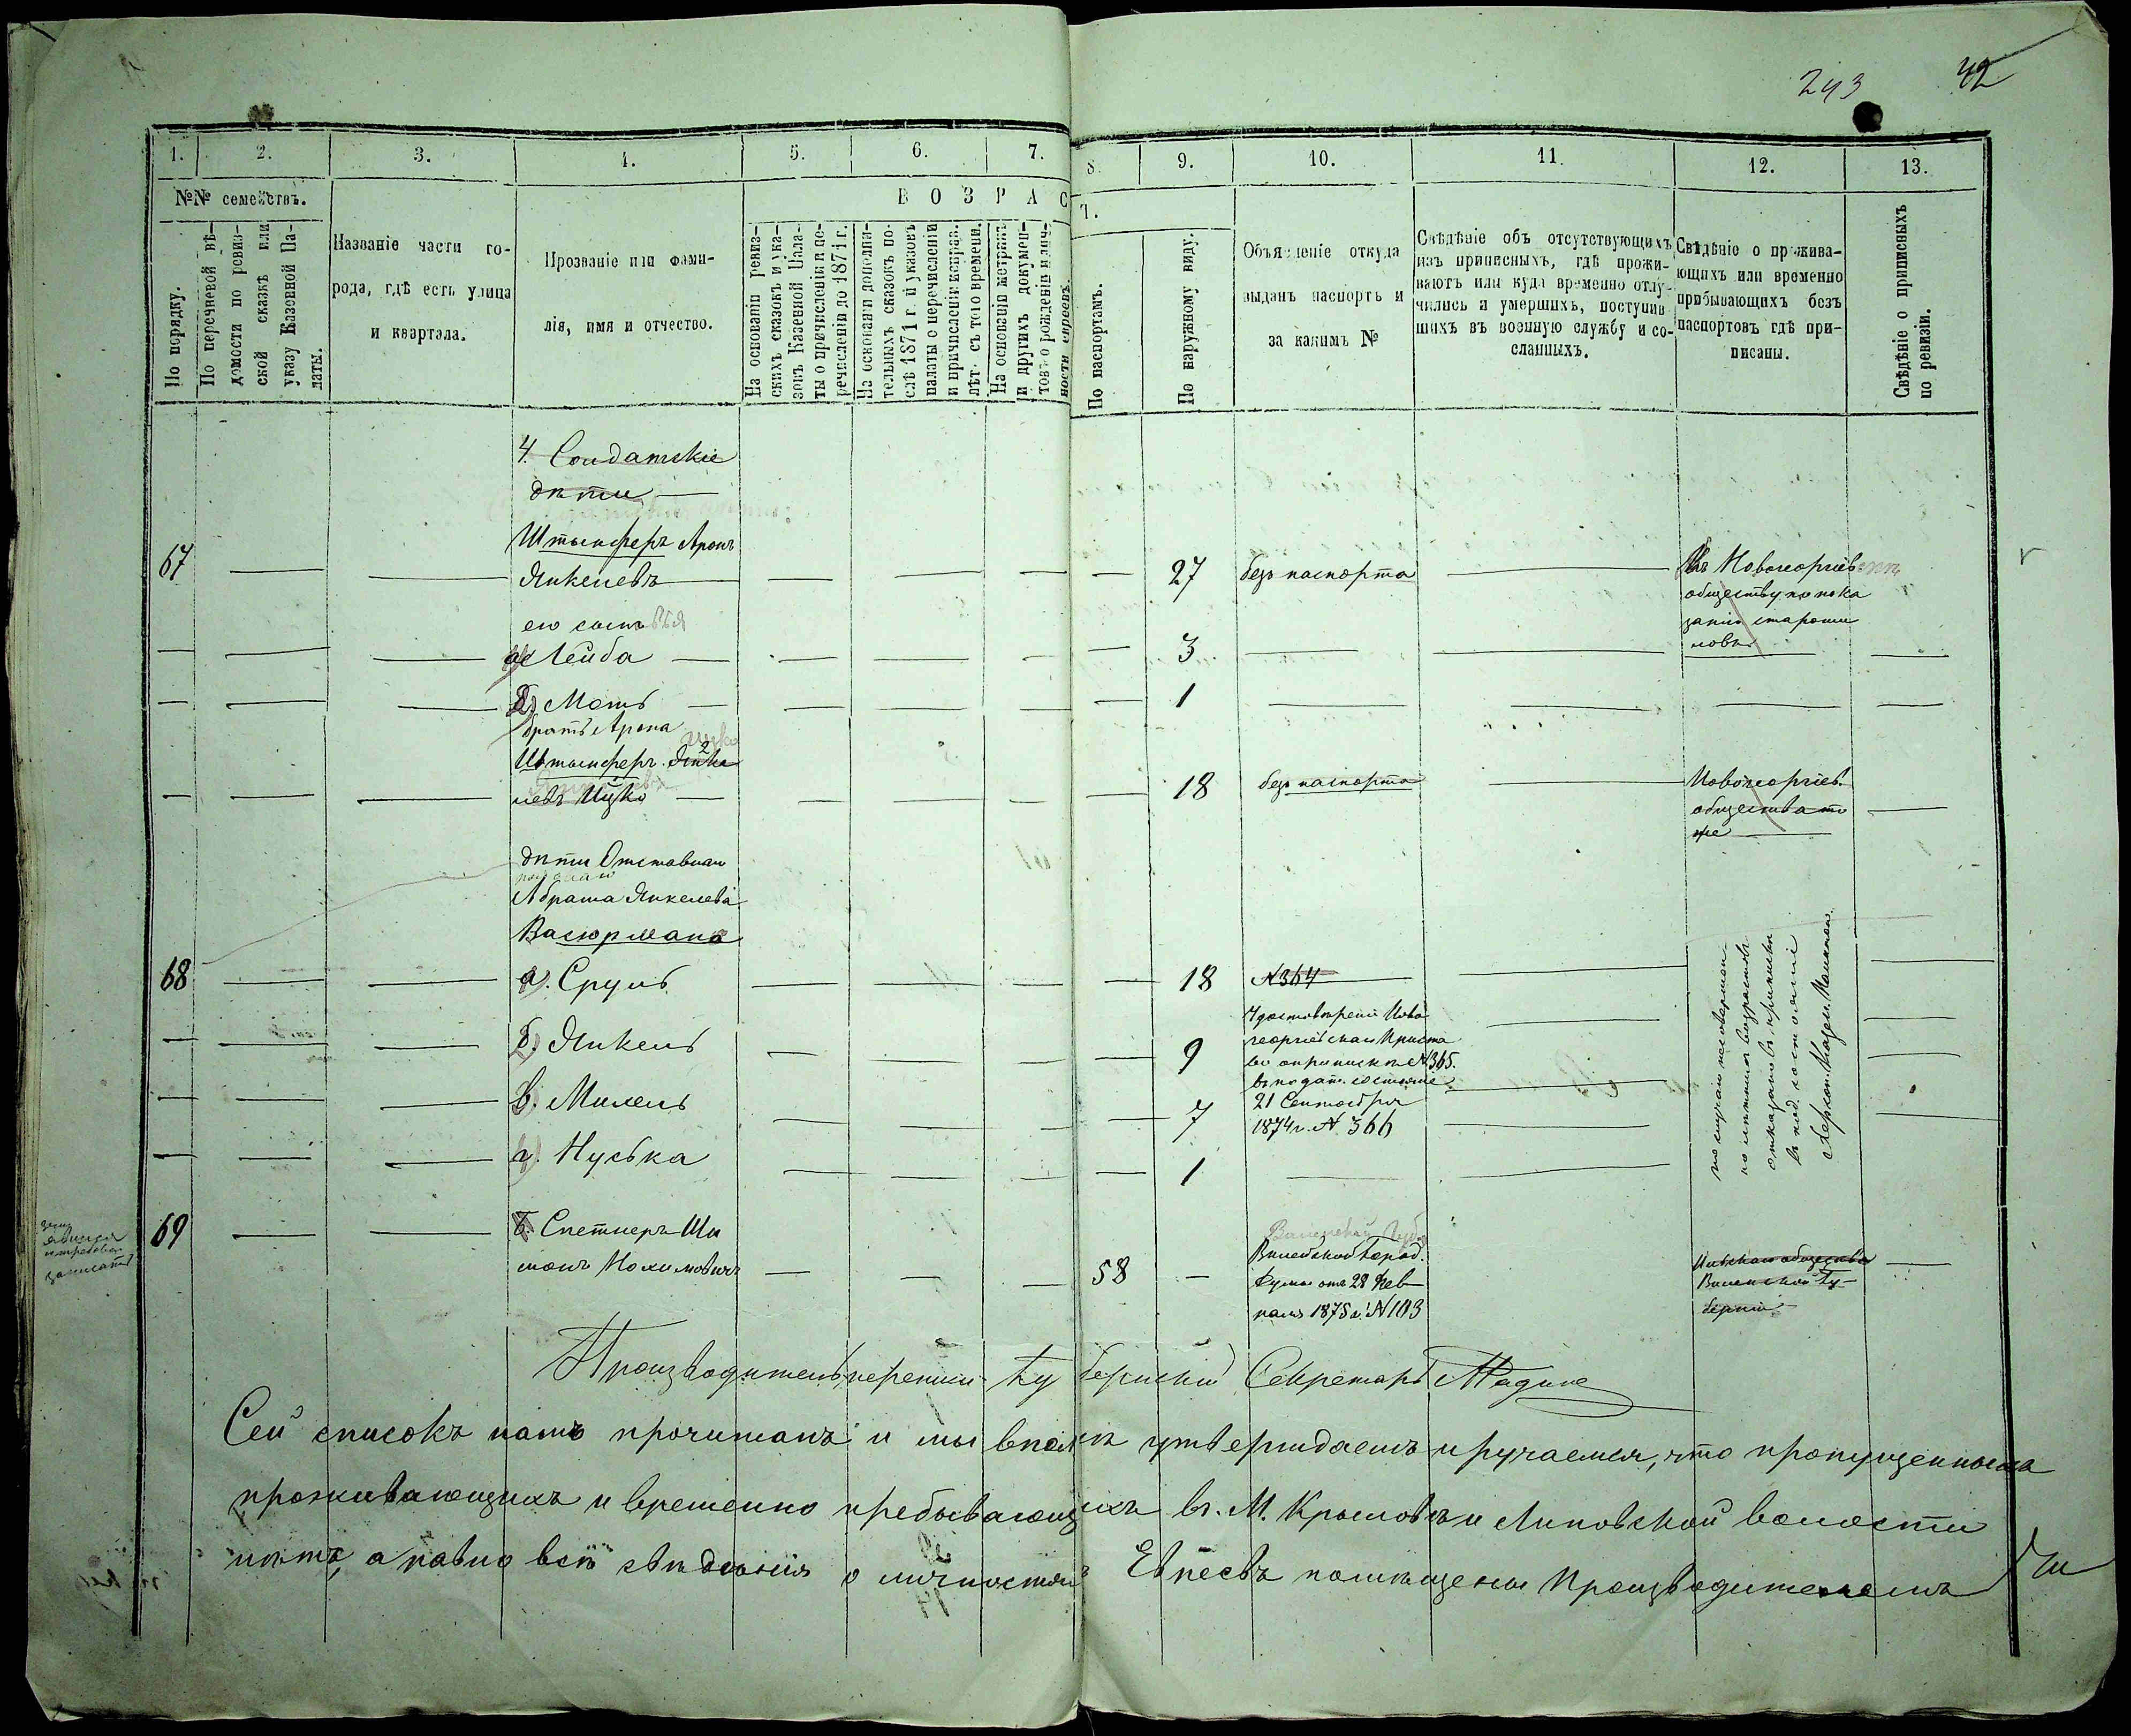 243 42
1. 2. 3. 4. 5. 6. 7. 8. 9. 10. 11. 12. 13.
№№ семействъ.
По порядку.
По перечневой вѣ-
домости по ревиз-
ской сказкѣ или
указу Казенной Па-
латы.
Названіе части го-
рода, гдѣ есть улица
и квартала.
Прозваніе или фами-
лія, имя и отчество.
ВОЗРАС
Т.
На основаніи ревиз-
скихъ сказокъ и ука-
зовъ Казенной Пала-
ты о причисленіи и пе-
речисленіи до 1871 г.
На основаніи дополни-
тельныхъ сказокъ по-
слѣ 1871 г. и указовъ
палаты о перечисленіи
и причисленіи исправ.
лѣтъ съ того времени.
На основаніи метрикъ
и другихъ докумен-
товъ о рожденіи и лич-
ности евреевъ.
По паспортамъ.
По наружному виду.
Объясненіе откуда
выданъ паспортъ и
за какимъ №
Свѣдѣніе объ отсутствующихъ
изъ приписныхъ, гдѣ прожи-
ваютъ или куда временно отлу-
чились и умершихъ, поступив-
шихъ въ военную службу и со-
сланныхъ.
Свѣдѣніе о прожива-
ющихъ или временно
прибывающихъ безъ
паспортовъ гдѣ при-
писаны.
Свѣдѣніе о приписныхъ
по ревизіи.
4. Солдатскіе
дѣти
67 Штынферъ Аронъ
Янкелевъ 27 безъ паспорта
Новогеоргіев
обществу по пока
занію старожи
ловъ
его сынъ
а) Лейба 3
б) Моть 1
братъ Арона
Штынферъ Янке
левъ Ицко 18 безъ паспорта
Новогеоргіев.
общества то
же
дѣти Отставнаго
Абрама Янкелева
Васюрмана
68 а). Сруль 18 №364
б). Янкель 9
Удостовѣреніе Ново
георгіевскаго Приста
ва о припискѣ №365.
въ подат. состояніе
21 Сентября
1874 г. № 366
в). Михель 7
г. Нуська 1
въ под. состояніе
Херсон. Казен. Палатою
69 Спетнеръ Ши
монъ Нохимовичъ 58
Вилейской Город.
Думы отъ 28 Фев
раля 1875 г. №103
общества
Виленской Гу-
берніи
Производитель переписи Губернскій Секретарь
Сей списокъ намъ прочитанъ и мы вполнѣ утверждаемъ и ручаемся, что пропущенныхъ
проживающихъ и временно пребывающихъ въ М. Крыловѣ и Липовской волости
нѣтъ, а равно всѣ свѣденія о личностяхъ Евреевъ помѣщены Производителемъ